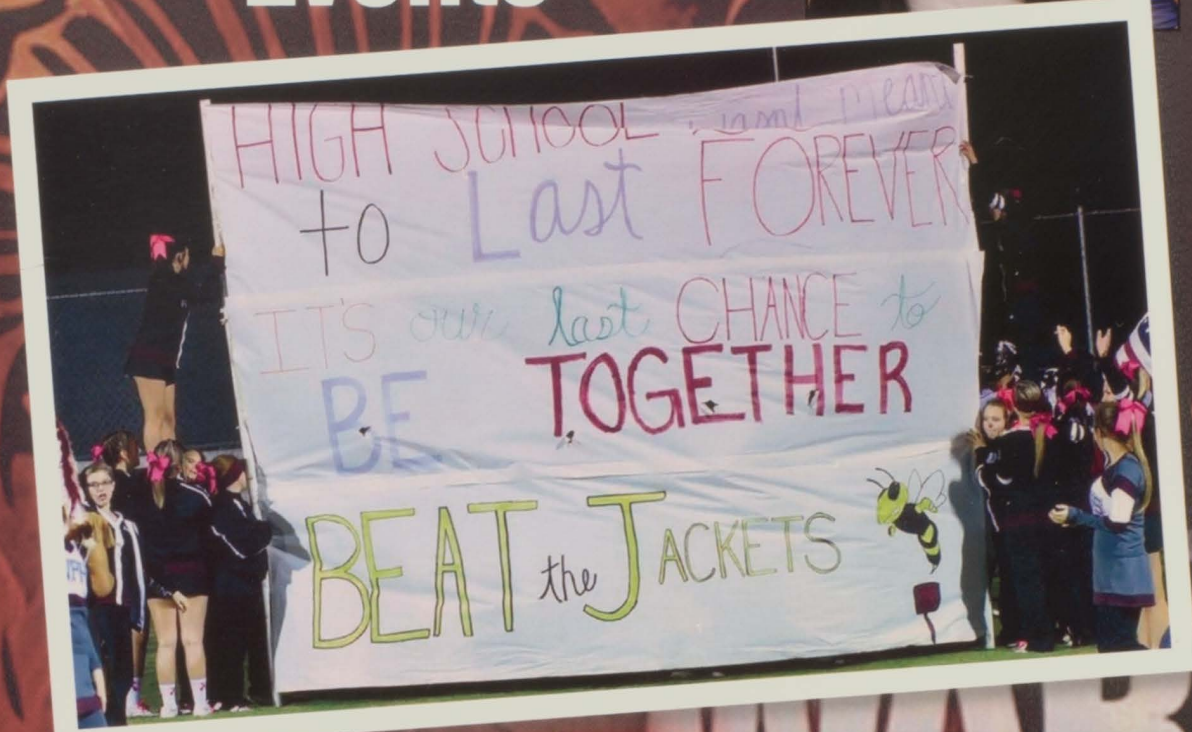 Events
HIGH SCHOOL isnt meant
to Last FOREVER
IT'S our last CHANCE to
BE TOGETHER
BEAT the JACKETS